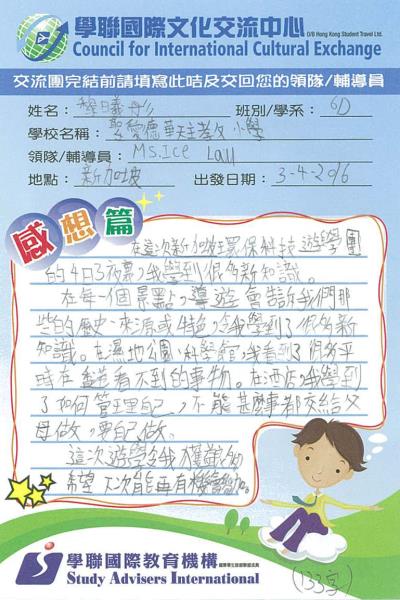 學聯國際文化交流中心 O/B Hong Kong Student Travel Ltd.
Council for International Cultural Exchange
交流團完結前請填寫此咭及交回您的領隊/輔導員
姓名： 黎曦彤 班別/學系： 6D
學校名稱： 聖愛德華天主教小學
領隊/輔導員： Ms.Ice Lau
地點： 新加坡 出發日期： 3-4-2016
感想篇
在這次新加坡環保科技遊學團
的4日3夜裏，我學到很多新知識。
在每一個景點，導遊會告訴我們那
些的歷史、來源或特色，令我學到了很多新
知識。在濕地公園、科學館，我看到了很多平
時在 看不到的事物。在酒店，我學到
了如何管理自己，不能甚麼事都交給父
母做，要自己做。
這次遊學令我獲益
希望下次能再有機會參加。
(133字)
學聯國際教育機構
Study Advisers International